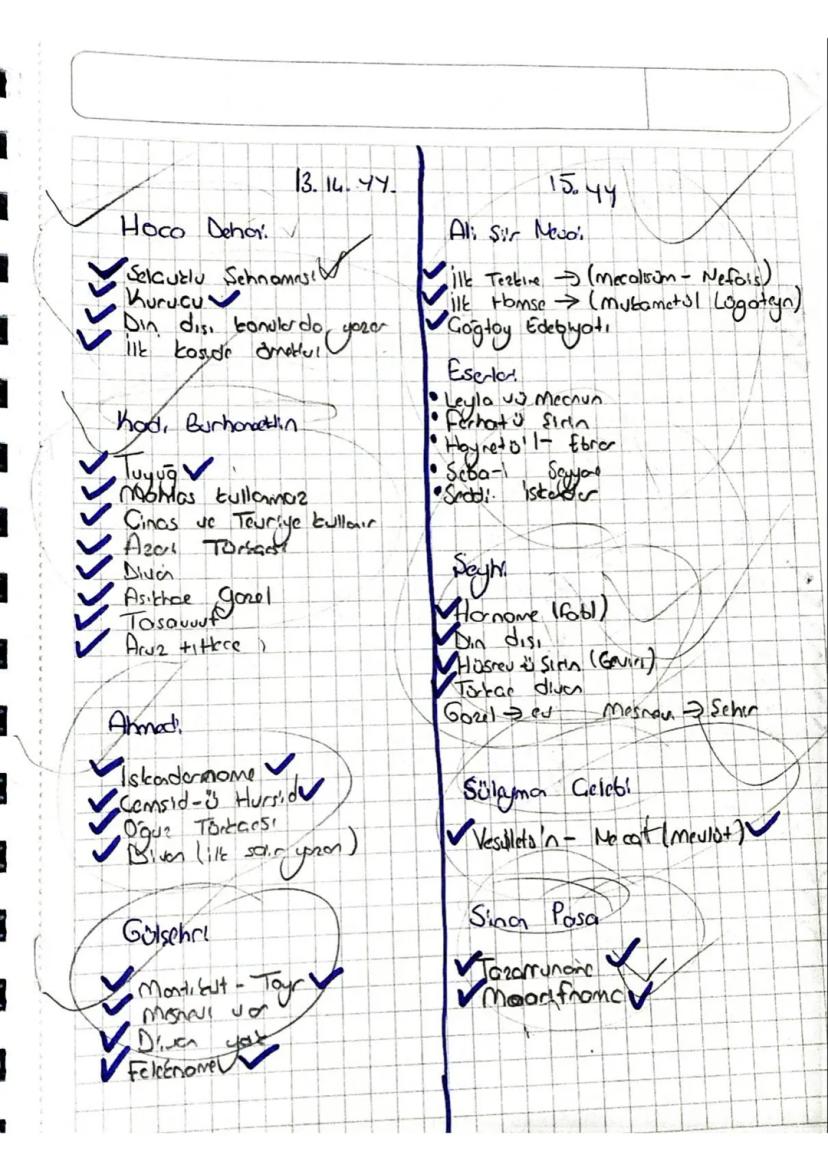 13.14.YY.
Hoca Dehhai
Selçuklu Şehnamesi
Kurucu
Din dışı konularda yazar
İlk kaside örnekl
Kadı Burhanettin
Tuyuğ
Mahlas kullanmaz
Cinas ve Tevriye kullanır
Azeri Türkçesi
Divan
Aşıkhane gazel
Tasavvuf
Aruz
Ahmedi
İskendername
Cemşid-ü Hurşid
Oğuz Türkçesi
Divan (ilk yazan)
Gülşehri
Mantıkut-Tayr
Mesnevi var
Divan yok
Felekname
15.YY
Ali Şir Nevai
İlk Tezkire → (Mecalisün-Nefais)
İlk Hamse → (Muhametül Lügateyn)
Çağtay Edebiyatı
Eserleri
• Leyla vü Mecnun
• Ferhat ü Şirin
• Hayretü'l-Ebrar
• Seba-i Seyyar
• Seddi İskender
Şeyhi
Harname (Fabl)
Din dışı
Hüsrev ü Şirin (Çeviri)
Türkçe divan
Gazel → ev Mesnevi → Şehir
Süleyma Çelebi
Vesiletü'n-Necat (Mevlüt)
Sinan Paşa
Tazarruname
Maarifname